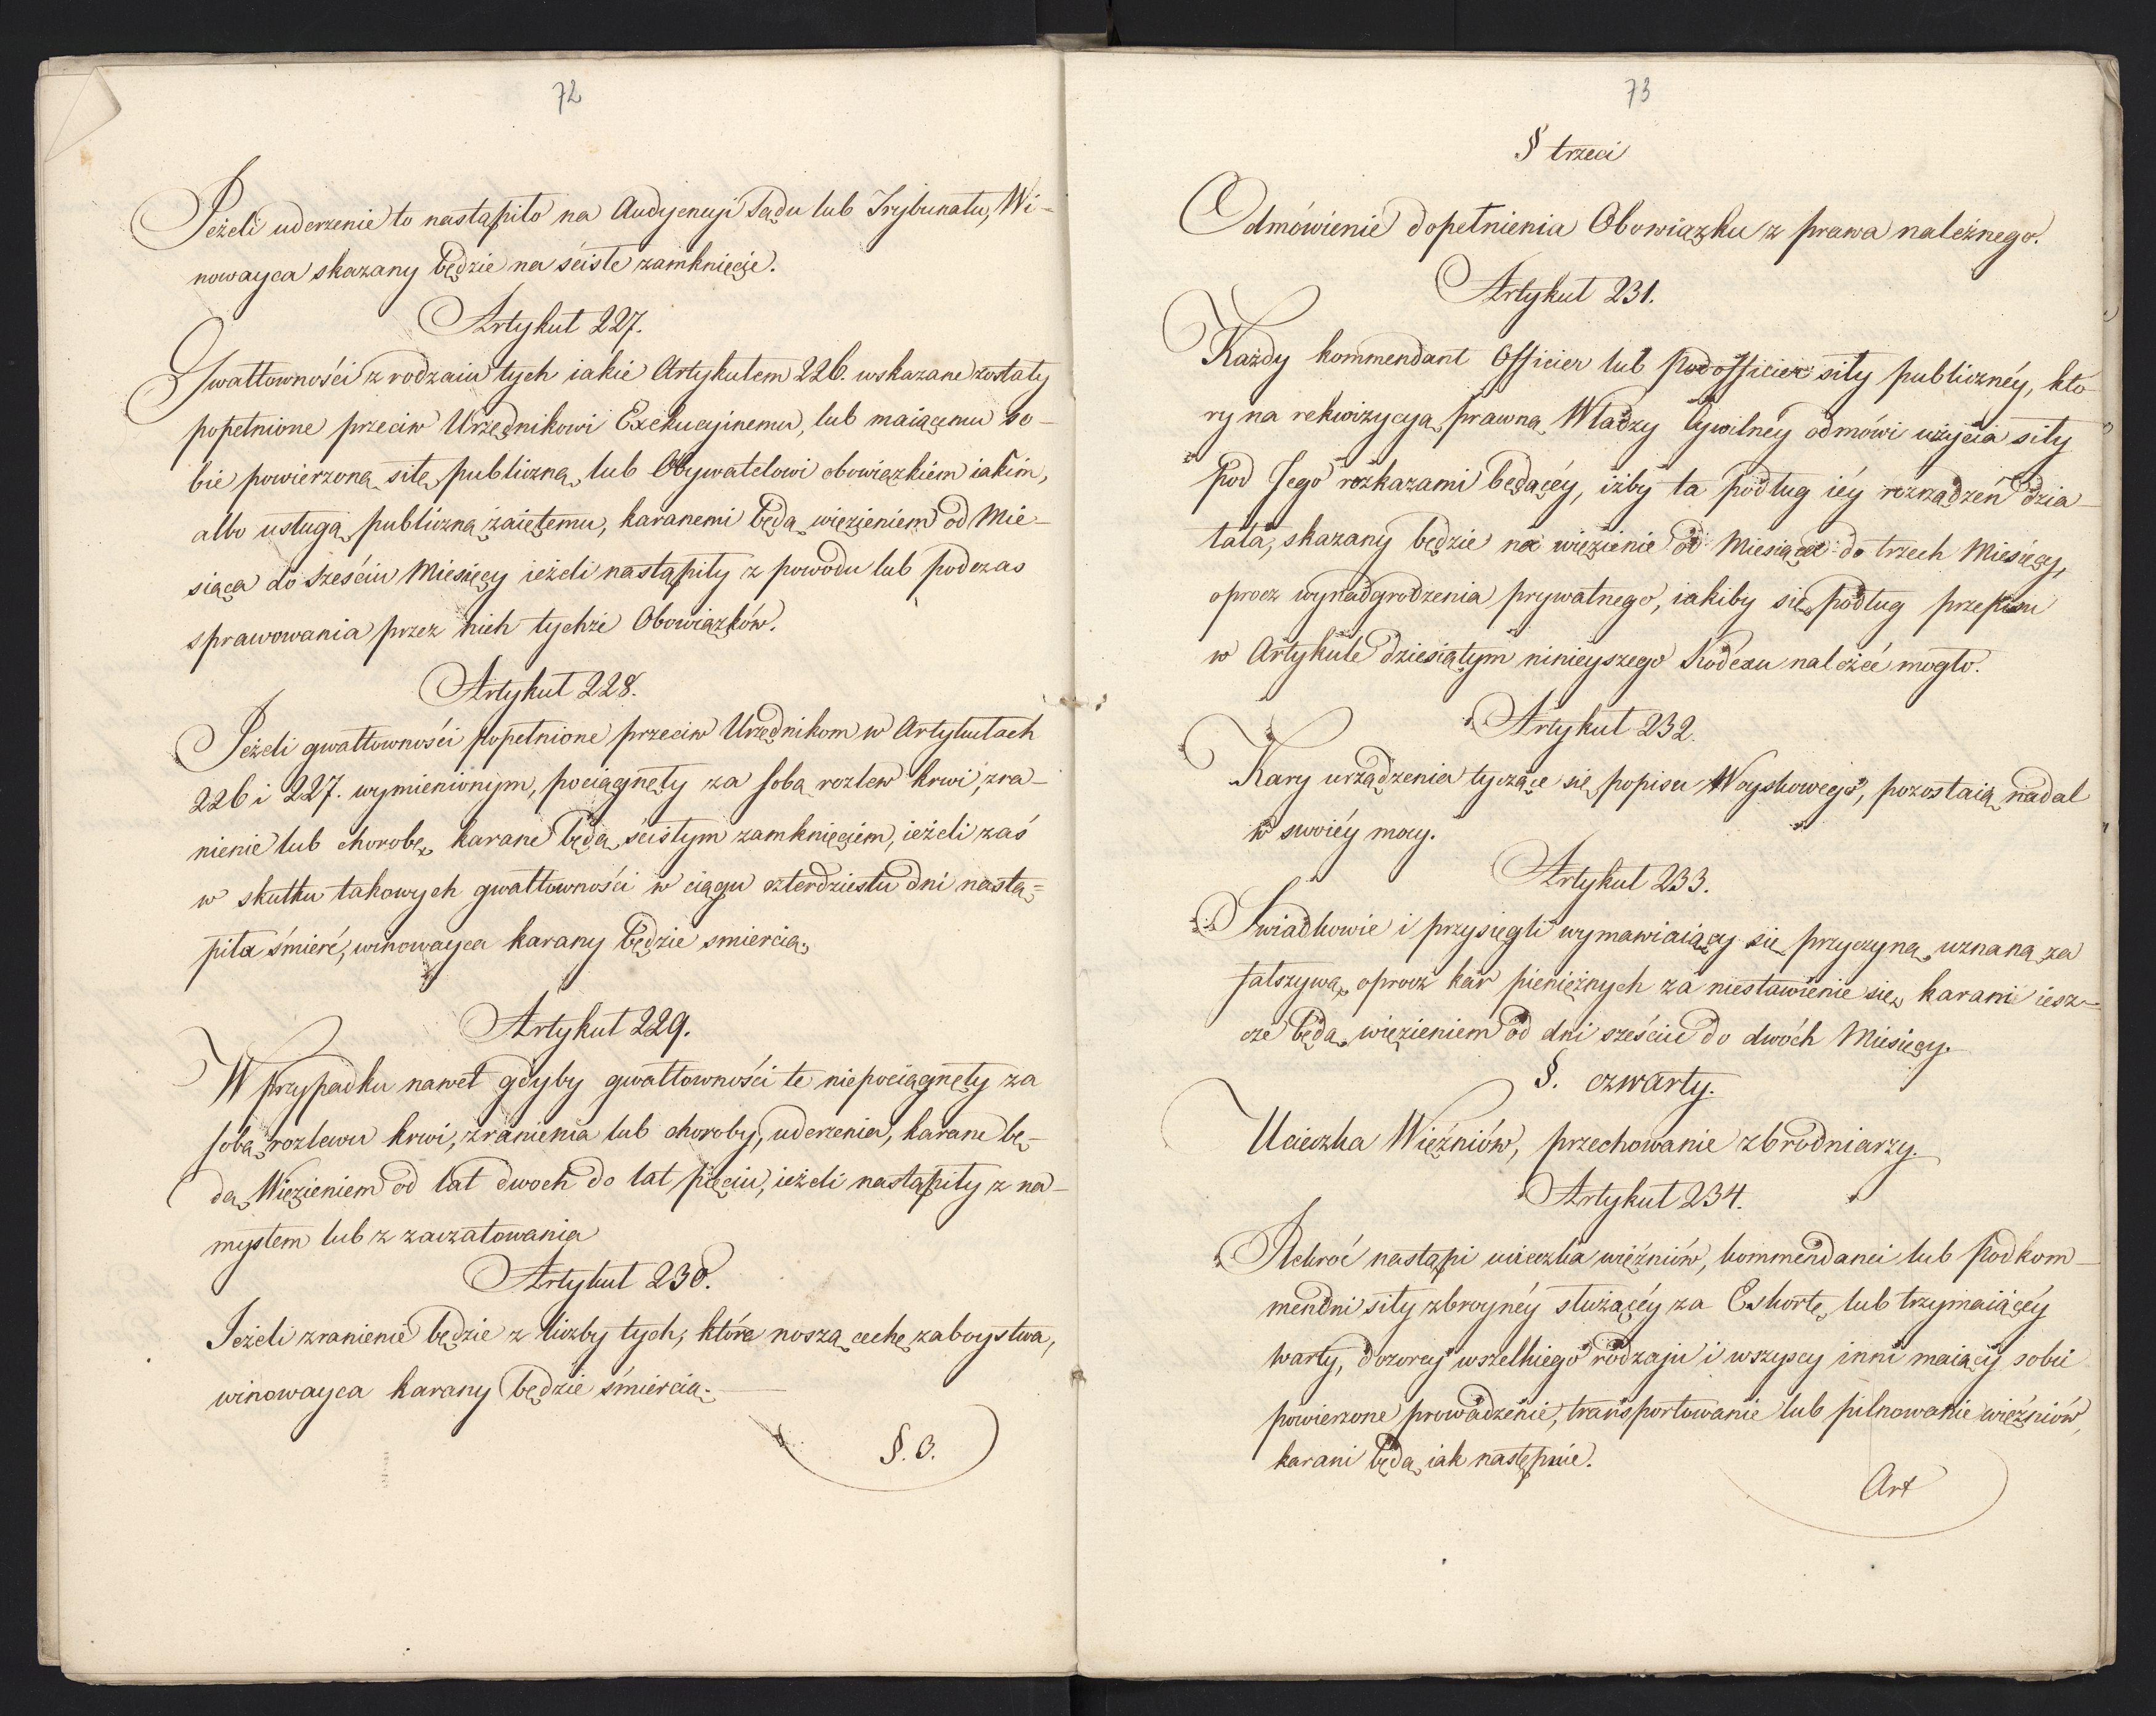 72
Jeżeli uderzenie to nastąpiło na Audyencyi Sądu lub Trybunału, Wi-
nowayca skazany będzie na ściste zamknięcie.
Artykuł 227.
Gwałtowności z rodzaiu tych iakie Artykułem 226. wskazane zostały
popełnione przeciw Urzędnikowi Exekucyinemu, lub maiącemu so-
bie powierzoną siłę publiczną, lub Obywatelowi obowiązkiem iakim,
albo usługą publiczną zaiętemu, karanemi będą więzieniem od Mie-
siąca do sześciu Miesięcy ieżeli nastąpiły z powodu lub podczas
sprawowania przez nich tychże Obowiązków.
Artykuł 228.
Jeżeli gwałtowności popełnione przeciw Urzędnikom w Artykułach
226 i 227. wymienionym, pociągnęły za sobą rozlew krwi, zra-
nienie lub chorobę, karane będą ścisłym zamknięciem, ieżeli zaś
w skutku takowych gwałtowności w ciągu czterdziestu dni nastą=
piła śmierć, winowayca karany będzie smiercią.
Artykuł 229.
W przypadku nawet gdyby gwałtowności te niepociągnęły za
sobą rozlewu krwi, zranienia lub choroby, uderzenia, karane bę-
dą Więzieniem od lat dwoch do lat pięciu, ieżeli nastąpiły z na-
mysłem lub z zaczatowania
Artykuł 230.
Jeżeli zranienie będzie z liczby tych, które noszą cechę zaboystwa,
winowayca karany będzie śmiercią.
§. 3.
73
§ trzeci
Odmówienie dopełnienia Obowiązku z prawa należnego.
Artykuł 231.
Każdy kommendant Officier lub podofficier siły publicznéy, któ-
ry na rekwizycyą prawną Władzy Cywilnéy odmówi użycia siły
pod Jego rozkazami będącéy, iżby ta podług iéy rozrządzeń dzia-
łała, skazany będzie na więzienie od Miesiąca do trzech Miesięcy,
oprocz wynadgrodzenia prywatnego, iakiby się podług przepisu
w Artykule dziesiątym ninieyszego Kodexu należeć mogło.
Artykuł 232.
Kary urządzenia tyczące się popisu Woyskowego, pozostaią nadal
w swoiéy mocy.
Artykuł 233.
Swiadkowie i przysięgli wymawiaiący się przyczyną uznaną za
fałszywą, oprocz kar pieniężnych za niestawienie się, karani iesz=
cze będą więzieniem od dni sześciu do dwóch Miesięcy.
§. czwarty.
Ucieczka Więźniów, przechowanie zbrodniarzy.
Artykuł 234.
Ilekroć nastąpi ucieczka więźniów, kommendanci lub podkom-
mendni siły zbroynéy służącéy za Eskortę lub trzymaiącéy
warty, dozorcy wszelkiego rodzaju i wszyscy inni maiący sobie
powierzone prowadzenie, transportowanie lub pilnowanie więźniów,
karani będą iak następuie.
Art